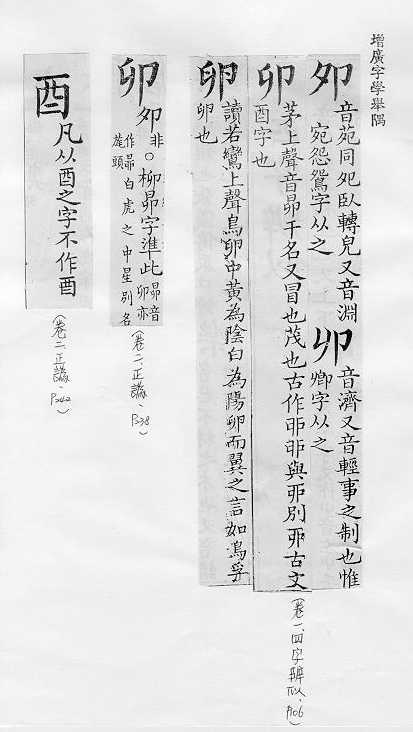 增廣字學舉隅
夗 音苑同夗臥轉皃又音淵
宛怨鴛字从之
卯 音濟又音輕事之制也惟
卿字从之
卯 茅上聲音昴干名又冒也茂也古作戼戼與丣別丣古文
酉字也
(卷一、四字辨似、P.106)
卵 讀若鸞上聲鳥卵中黃為陰白為陽卵而翼之言如鳥孚
卵也
卯 夘非○柳昴字準此 昴音卯亦
作昴白虎之中星別名
旄頭
(卷二、正譌、P.238)
酉 凡从酉之字不作酉
(卷二、正譌、P.242)